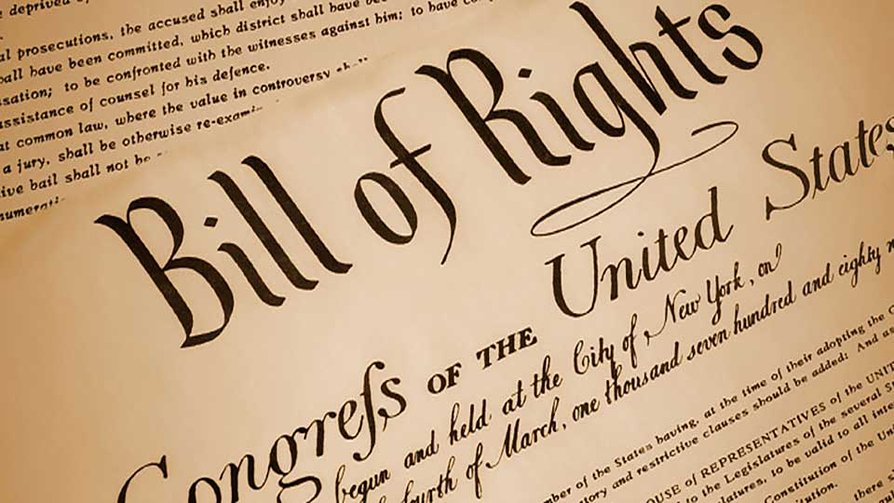 be deprived of
al prosecutions, the accused shall enjoy
hall have been committed, which district shall have been
sation; to be confronted with the witnesses against him; to have com
assistance of counsel for his defence.
at common law, where the value in controversy shall
a jury, shall be otherwise re-exami
ive bail shall not be
numerati
Bill of Rights
Congreſs OF THE United States
begun and held at the City of New York, on
fourth of March, one thousand seven hundred and eighty n
mber of the States having, at the time of their adopting the C
tory and restrictive clauses should be added: And as
OUSE of REPRESENTATIVES of the UNIT
to the Legislatures of the several S
latures, to be valid to all inte
Constitution of the Un